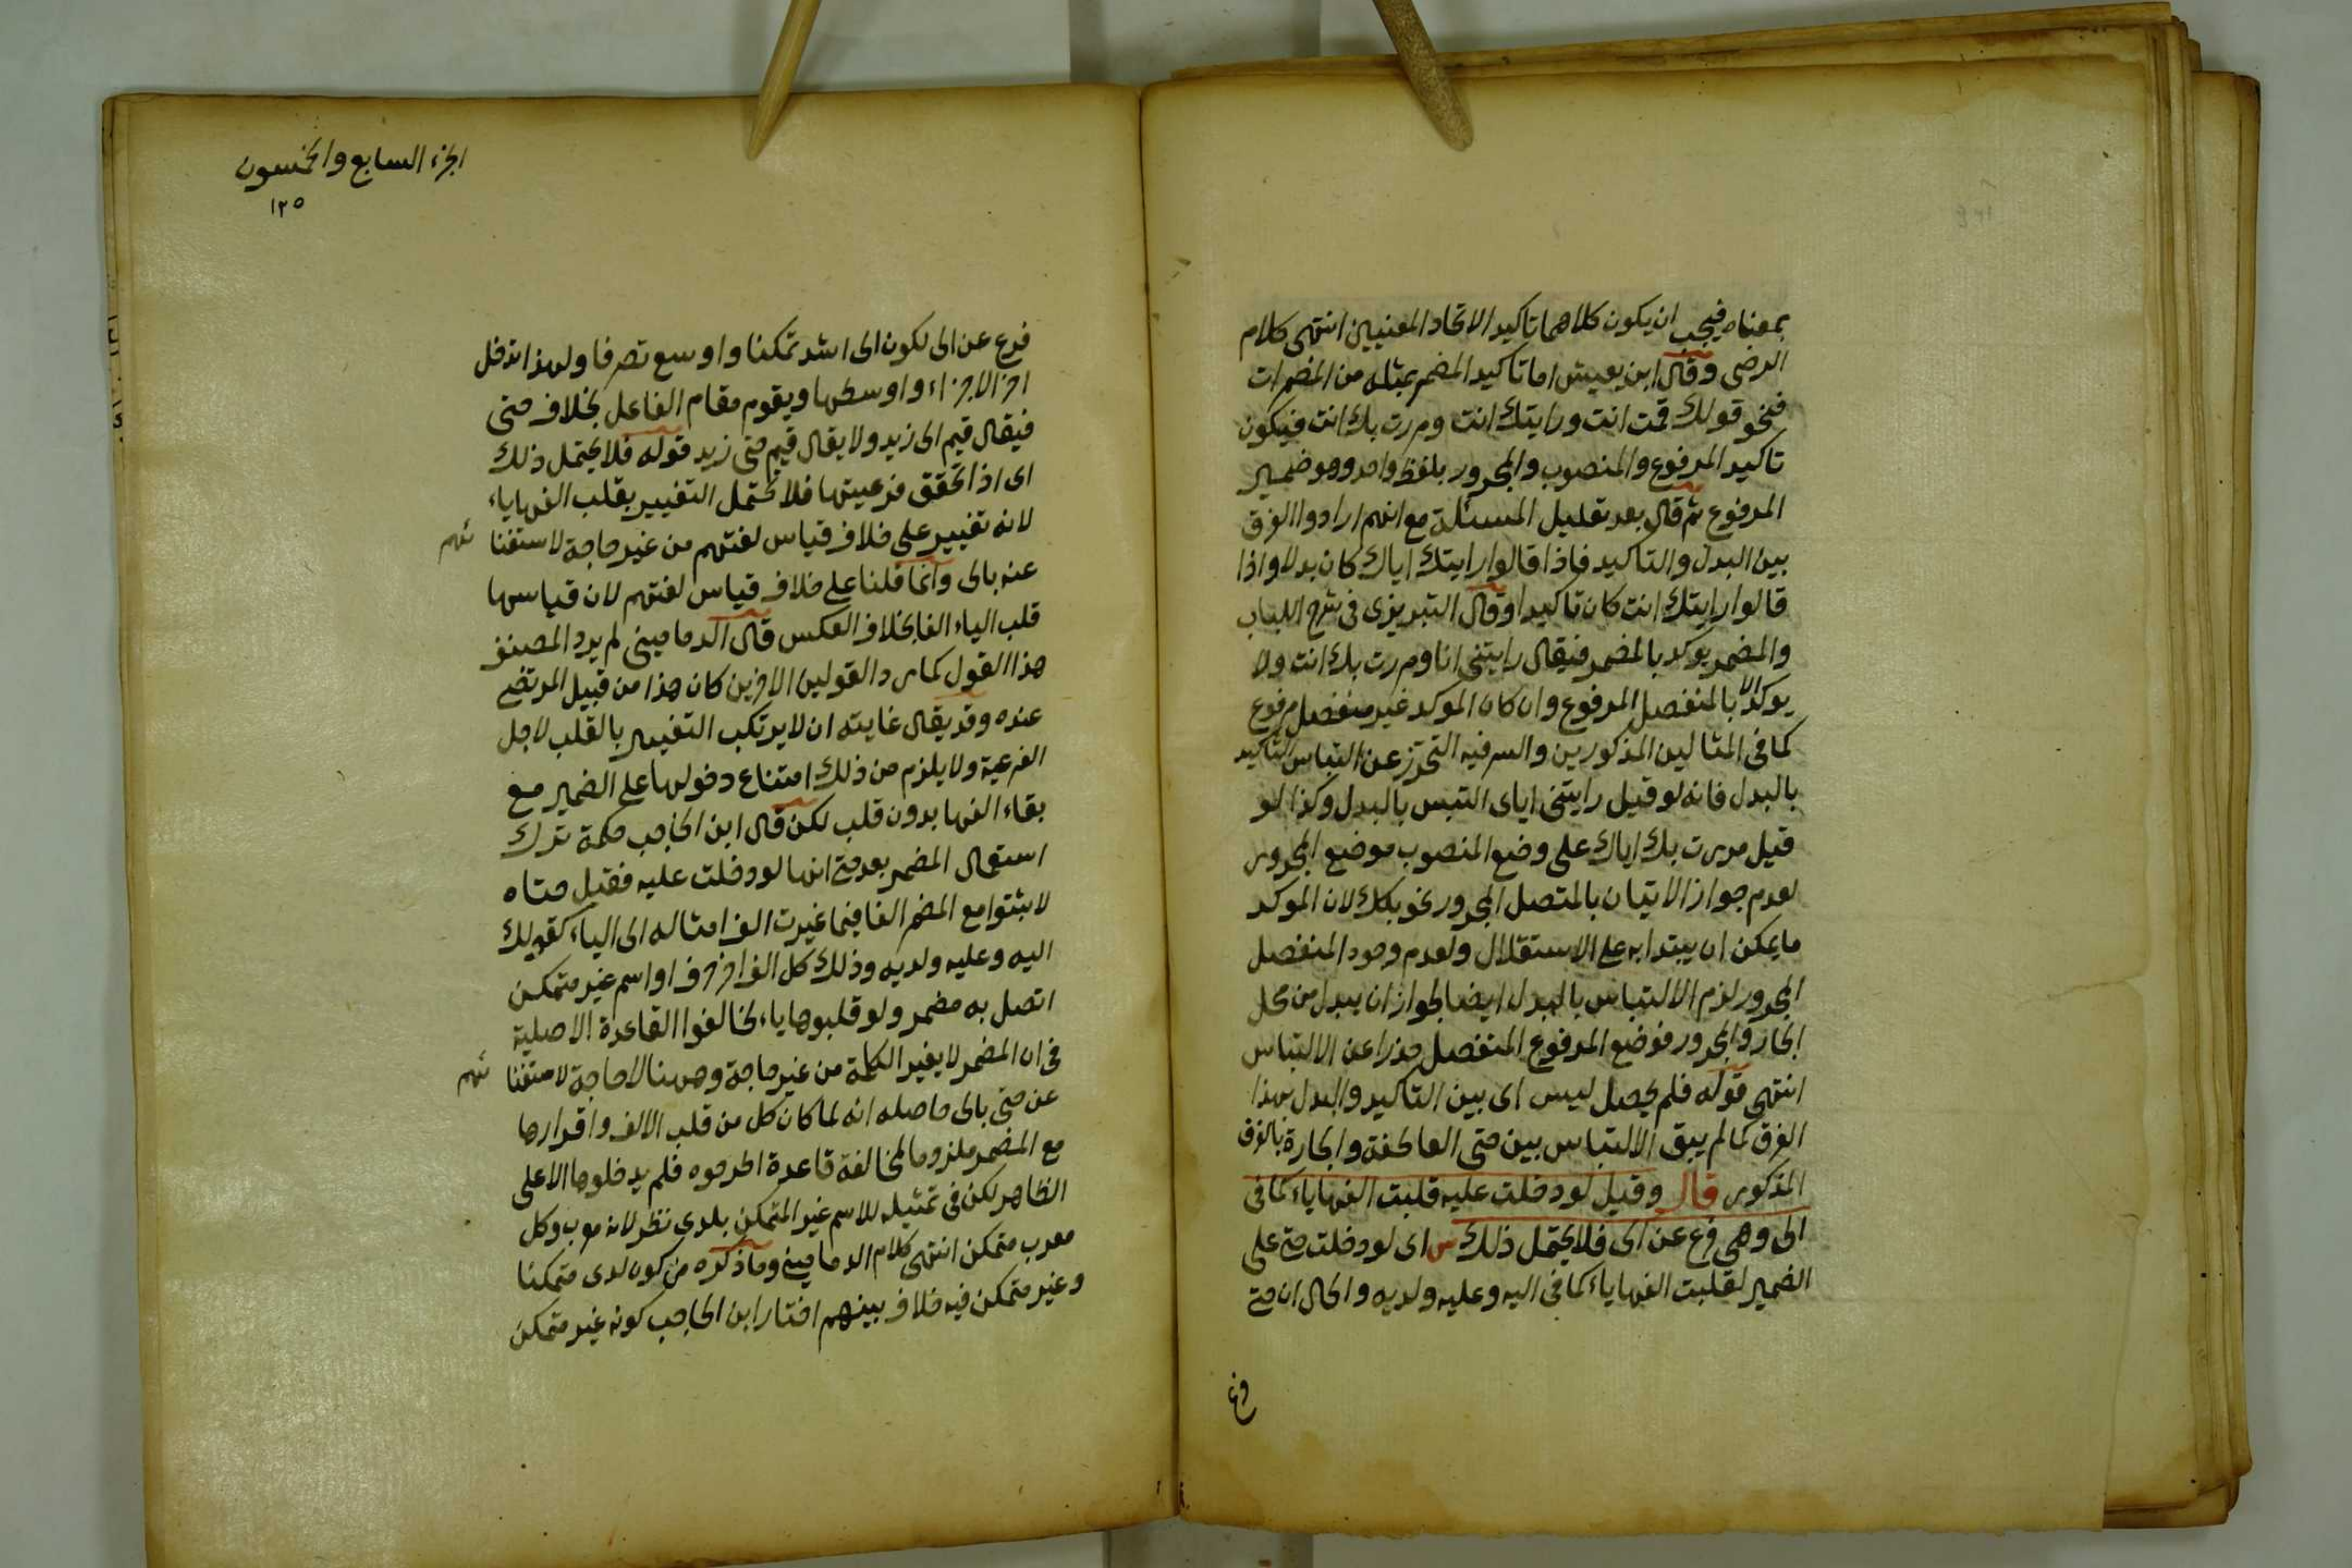 بمعناه فيجب ان يكون كلاهما تاكيد الاتحاد المعنيين انتهى كلام
الرضى وقال ابن يعيش اما تاكيد المضمر بمثله من المضمرات
فنحو قولك قمت انت ورايتك انت ومررت بك انت فيكون
تاكيد المرفوع والمنصوب والمجرور بلفظ واحد وهو ضمير
المرفوع ثم قال بعد تعليل المسئلة مع انهم ارادوا الفرق
بين البدل والتاكيد فاذا قالوا رايتك اياك كان بدلا واذا
قالوا رايتك انت كان تاكيدا وقال التبريزى فى شرح اللباب
والمضمر يوكد بالمضمر فيقال رايتنى انا ومررت بك انت ولا
يوكد الا بالمنفصل المرفوع وان كان الموكد غير منفصل مرفوع
كما فى المثالين المذكورين والسر فيه التحرز عن التباس التاكيد
بالبدل فانه لو قيل رايتنى اياى التبس بالبدل وكذا لو
قيل مررت بك اياك على وضع المنصوب موضع المجرور
لعدم جواز الاتيان بالمتصل المجرور نحو بكك لان الموكد
ما يمكن ان يبتدا به على الاستقلال ولعدم وجود المنفصل
المجرور لزم الالتباس بالبدل ايضا لجواز ان يبدل من محل
الجار والمجرور فوضع المرفوع المنفصل حذرا عن الالتباس
انتهى قوله فلم يحصل لبس اى بين التاكيد والبدل بهذا
الفرق كما لم يبق الالتباس بين حتى العاطفة والجارة بالفرق
المذكور قال وقيل لو دخلت عليه قلبت الفها ياء كما فى
الى وهى فرع عن الى فلا يحتمل ذلك س اى لو دخلت حتى على
الضمير لقلبت الفها ياء كما فى اليه وعليه ولديه والحال ان حتى
فرع
الجزء السابع والخمسون
١٢٥
فرع عن الى لكون الى اشد تمكنا واوسع تصرفا ولهذا تدخل
اخر الاجزاء واوسطها ويقوم مقام الفاعل بخلاف حتى
فيقال قيم الى زيد ولا يقال قيم حتى زيد قوله فلا يحتمل ذلك
اى اذا تحقق فرعيتها فلا تحتمل التغيير بقلب الفها ياء
لانه تغيير على خلاف قياس لغتهم من غير حاجة لاستغنا ئهم
عنه بالى وانما قلنا على خلاف قياس لغتهم لان قياسها
قلب الياء الفا بخلاف العكس قال الدمامينى لم يرد المصنف
هذا القول كما رد القولين الاخرين كان هذا من قبيل المرتضى
عنده وقد يقال غايته ان لا يرتكب التغيير بالقلب لاجل
الفرعية ولا يلزم من ذلك امتناع دخولها على الضمير مع
بقاء الفها بدون قلب لكن قال ابن الحاجب حكمة ترك
استعمال المضمر بعد حتى انها لو دخلت عليه فقيل حتاه
لاثبتوا مع المضمر الفا فيما غيرت الف امثاله الى الياء كقولك
اليه وعليه ولديه وذلك كل الف اخر حرف او اسم غير متمكن
اتصل به مضمر ولو قلبوها ياء لخالفوا القاعدة الاصلية
فى ان المضمر لا يغير الكلمة من غير حاجة وههنا لا حاجة لاستغنا ئهم
عن حتى بالى حاصله انه لما كان كل من قلب الالف واقرارها
مع المضمر ملزوما لمخالفة قاعدة اطرحوه فلم يدخلوها الا على
الظاهر لكن فى تمثيله للاسم غير المتمكن بلدى نظر لانه معرب وكل
معرب متمكن انتهى كلام الدمامينى وما ذكره من كون لدى متمكنا
وغير متمكن فيه خلاف بينهم اختار ابن الحاجب كونه غير متمكن